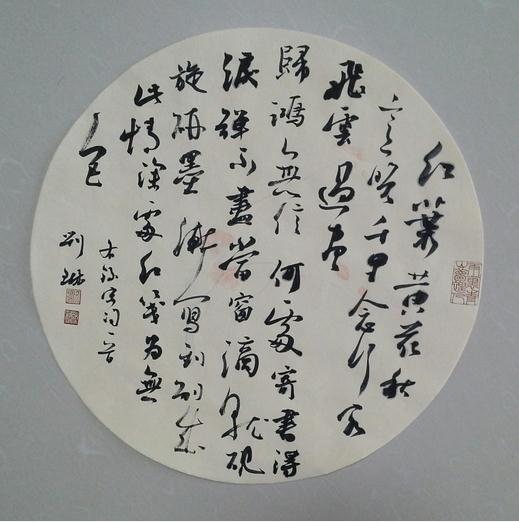 红葉黄花秋
意晚千里念行客
飛雲過尽
歸鴻無信何處寄書得
淚彈不盡當窗滴就硯
旋研墨漸寫到別來
此情深處紅箋為無
色
右錄宋詞一首